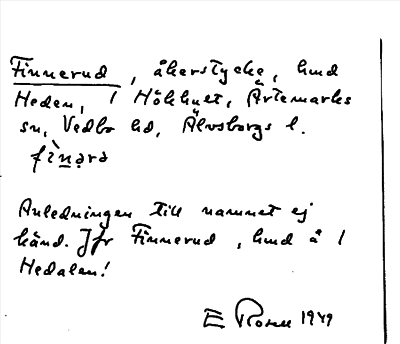 Finnerud, åkerstycke, hmd
Heden, 1 Hökhult, Ärtemarks
sn, Vedbo hd, Älvsborgs l.
Anledningen till namnet ej
känd. Jfr Finnerud, hmd å 1
Hedalen!
E Rosell 1949